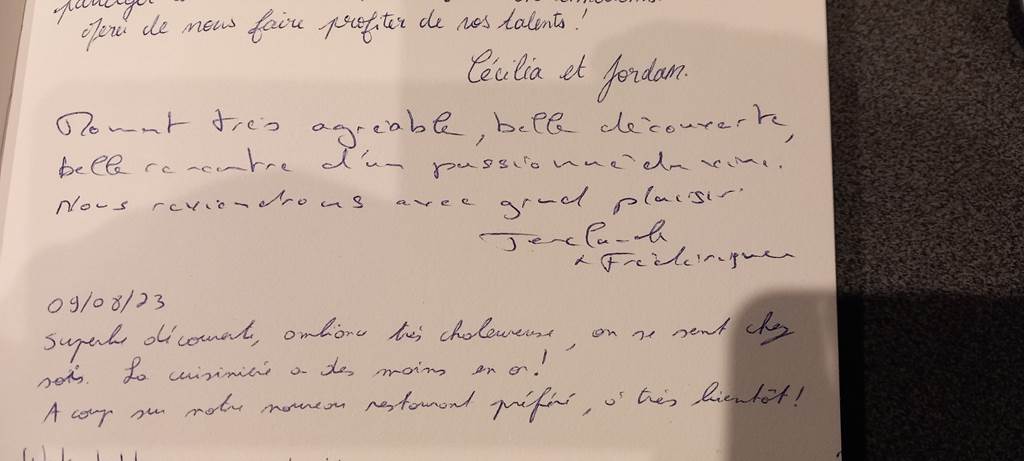 de nous faire profiter de vos talents !
Cécilia et Jordan.
Moment très agréable, belle découverte,
belle rencontre d'un passionné du vin.
Nous reviendrons avec grand plaisir
& Frédérique
09/08/23
Superbe découverte, ambiance très chaleureuse, on se sent chez
sois. La cuisinière a des mains en or !
A coup sur notre nouveau restaurant préféré, à très bientôt !